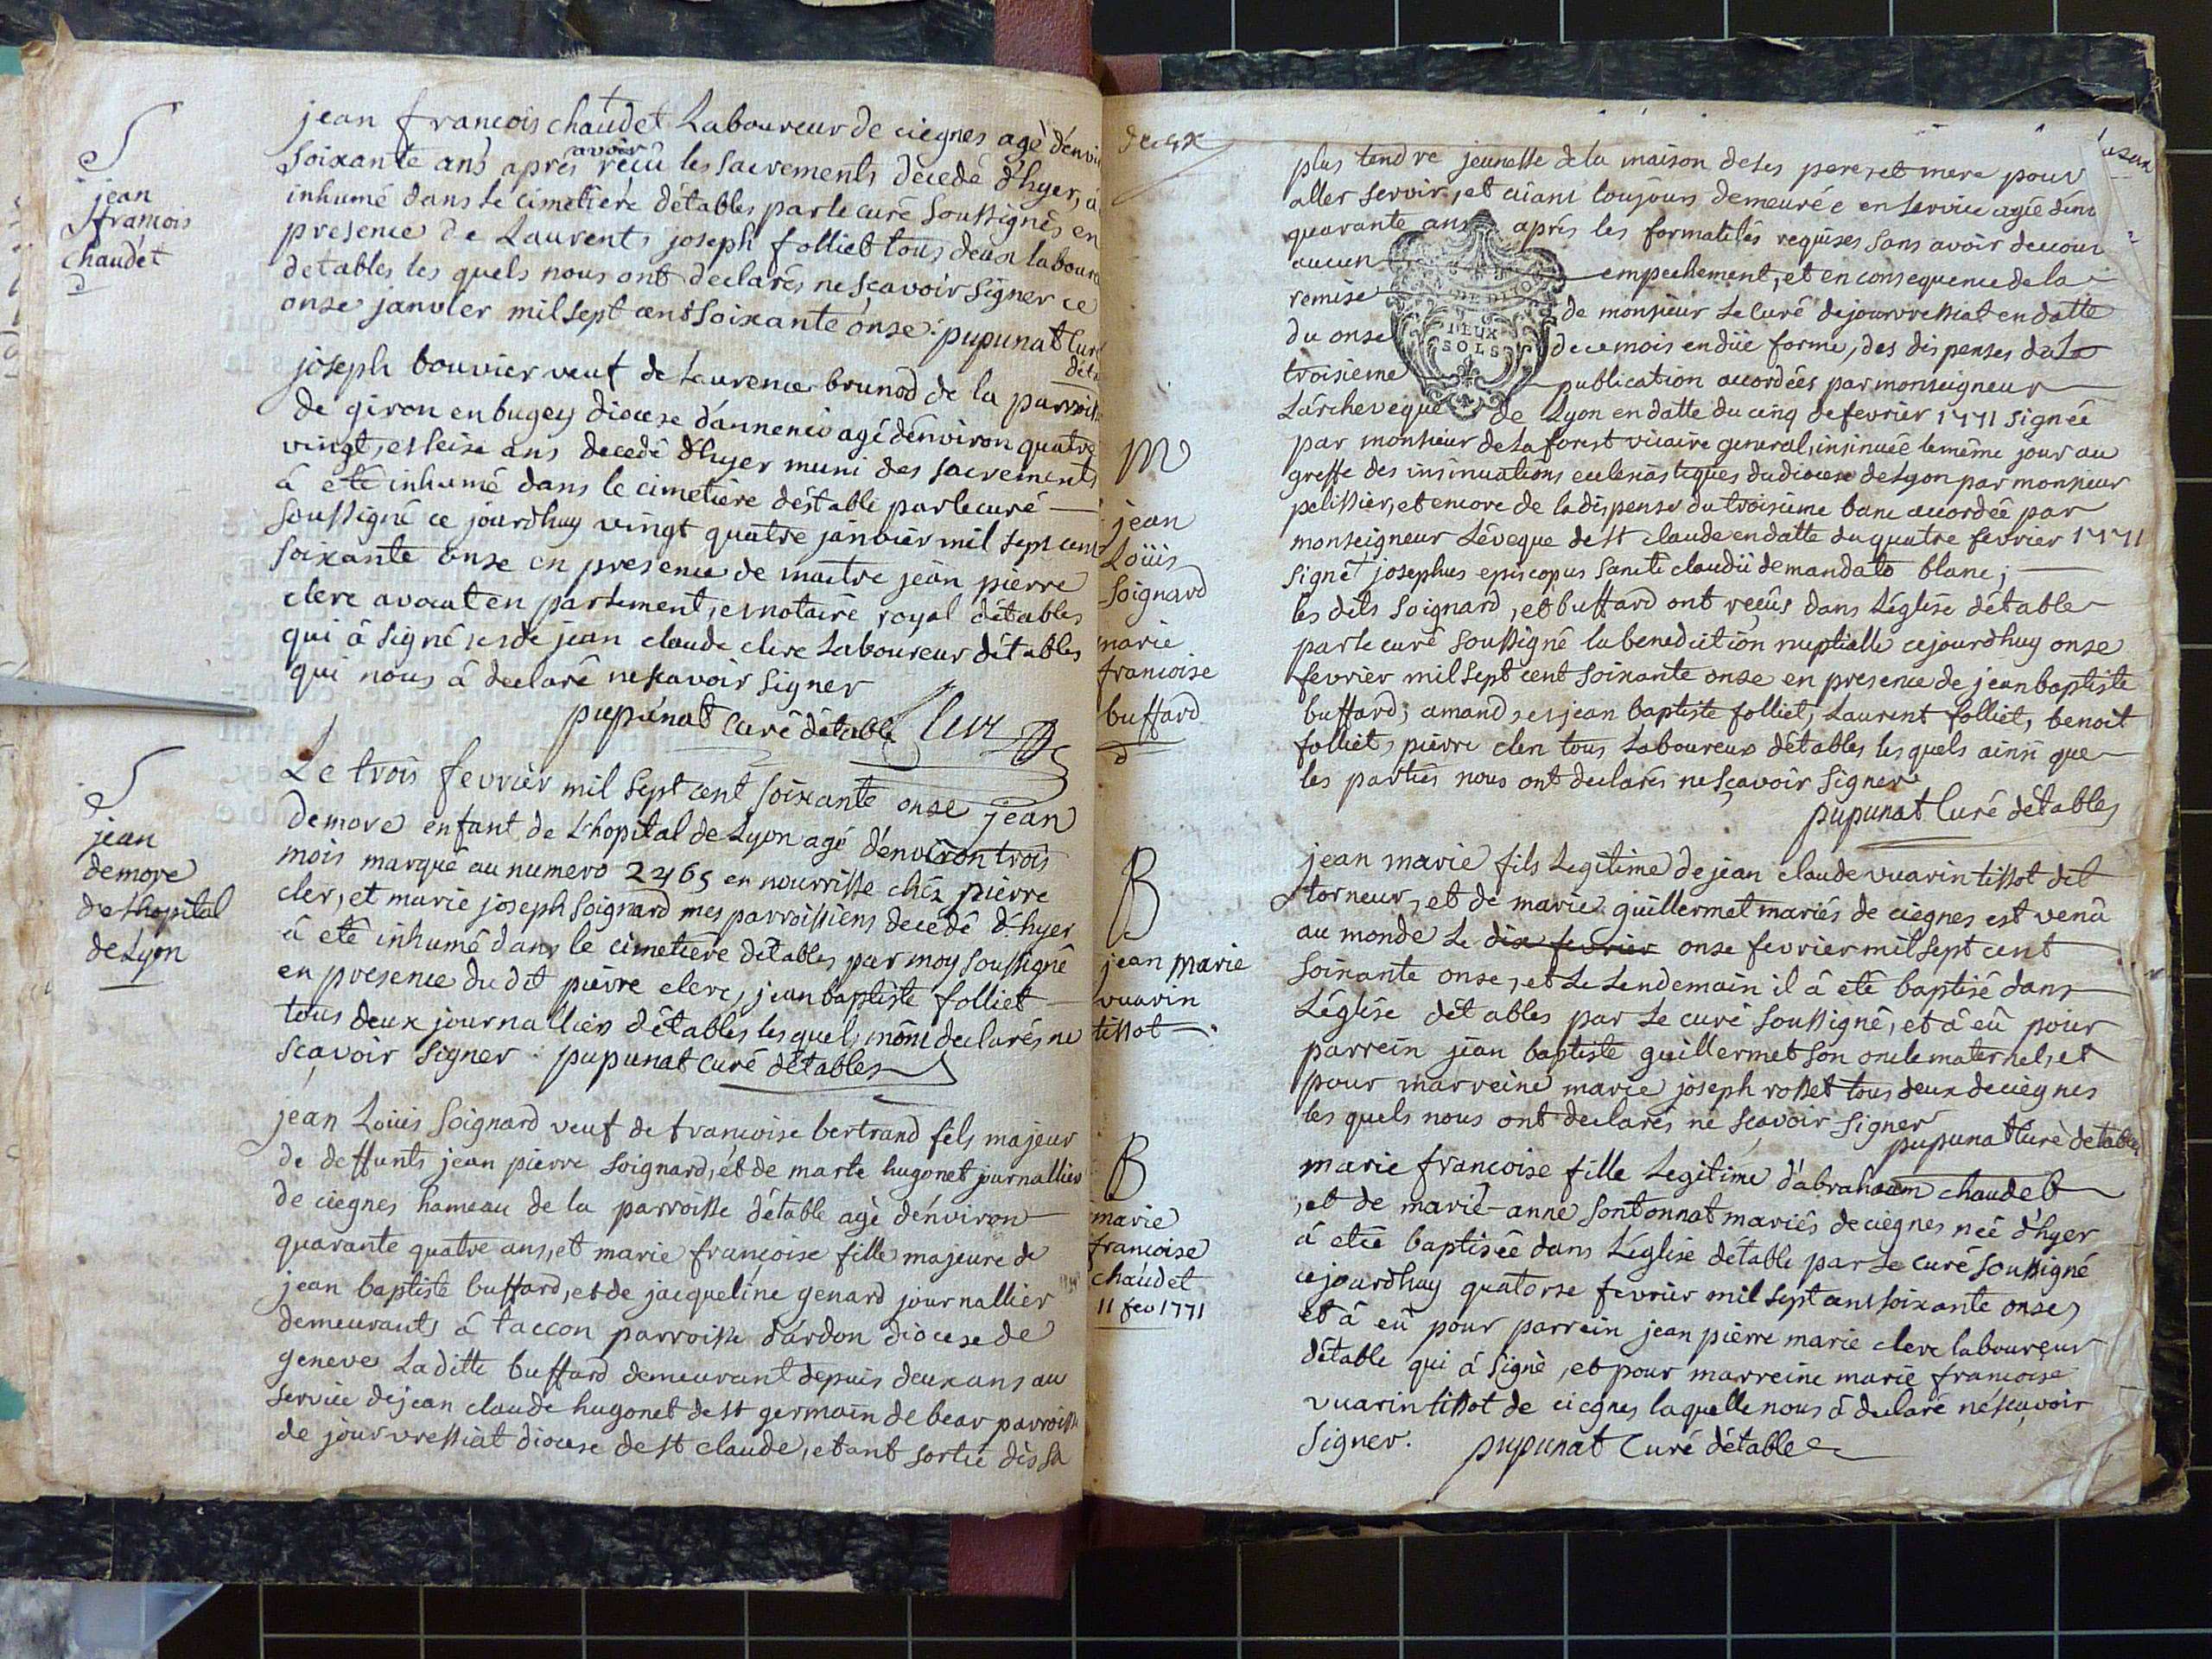 S
jean
francois
chaudet
jean francois chaudet Laboureur de ciegnes agè dénvi
soixante ans aprés avoir reçû les sacrements dècedé d'hyer, á
inhumé dans le cimetiére détables par le curé soussignés en
presence de Laurent, joseph folliet tous deux laboure
detables les quels nous ont declarés ne sçavoir signer ce
onse janvier mil sept cent soixante onse. pupunat Curé
déta
joseph bouvier veuf de Laurence brunod de la parroisse
de giron en bugey diocese d'annenci agé dénviron quatre
vingt, et seise ans decedé d'hyer muni des sacrements
á eté inhumé dans le cimetiére détable par le curé
soussigné ce jourdhuy vingt quatre janvier mil sept cent
soixante onse en presence de maitre jean pierre
clerc avocat en parlement, et notaire royal détables
qui á signé, et de jean claude clerc Laboureur détables
qui nous á declaré ne scavoir signer
pupunat Curé détable Clerc
S
jean
demore
de Lhopital
de Lyon
Le trois fevrier mil sept cent soixante onse jean
demore enfant de L'hopital de Lyon agé dénviron trois
mois marqué au numero 2465 en nourrisse chés pierre
cler, et marie joseph soignard mes parroissiens decédé d'hyer
á eté inhumé dans le cimetiére détables par moy soussigné
en presence du dit pierre clerc, jean baptiste folliet
tous deux journalliers détables les quels m'ont declarés ne
sçavoir signer. pupunat curé détables
jean Loüis soignard veuf de francoise bertrand fils majeur
de deffunts jean pierre soignard, et de marte hugonet journallier
de ciegnes hameau de la parroisse détable agè dénviron
quarante quatre ans, et marie françoise fille majeure de
jean baptiste buffard, et de jacqueline genard journallier
demeurants á taccon parroisse d'árdon diocese de
geneve La ditte buffard demeurant depuis deux ans au
service de jean claude hugonet de st germain de bear parroisse
de jourvressiat diocese de st claude, etant sortie dès sa
deux
plus tendre jeunesse de la maison de ses pere, et mere pour
aller servir, et aiant toujours demeurée en service agée dénv
quarante ans aprés les formalités requises sans avoir decouv
aucun empechement, et en consequence de la
remise de monsieur le Curé de jourvressiat en datte
du onse de ce mois en düe forme, des dispenses de la
troisieme publication accordées par monseigneur
Lárcheveque de Lyon en datte du cinq de fevrier 1771 signée
DE DIJON
DEUX
SOLS
par monsieur de la forest vicaire general, insinuée le même jour au
greffe des insinuations ecclesiastiques du diocese de Lyon par monsieur
pelissier, et encore de la dispense du troisieme banc accordée par
monseigneur Léveque de st claude en datte du quatre fevrier 1771
signé josephus episcopus sancti claudii de mandato blanc;
les dits soignard, et buffard ont reçûs dans Léglise détable
par le curé soussigné la benediction nuptialle ce jourdhuy onse
fevrier mil sept cent soixante onse en presence de jean baptiste
buffard, amand, et jean baptiste folliet, Laurent folliet, benoit
folliet, pierre clerc tous Laboureurs détables les quels ainsi que
les parties nous ont declarés ne sçavoir signer
pupunat Curé détables
M
jean
Loüis
soignard
marie
francoise
buffard
B
jean marie
vuarin
tissot
jean marie fils Legitime de jean claude vuarin tissot dit
torneur, et de marie guillermet mariés de ciegnes est venû
au monde Le dix fevrier onse fevrier mil sept cent
soixante onse, et Le Lendemain il á eté baptisé dans
Léglise détables par Le curé soussigné, et á eû pour
parrein jean baptiste guillermet son oncle maternel, et
pour marreine marie joseph rosset tous deux de ciegnes
les quels nous ont declarés ne sçavoir signer
pupunat Curé detables
B
marie
francoise
chaudet
11 fev 1771
marie francoise fille Legitime d'abraham chaudet
, et de marie-anne sontonnat mariés de ciegnes née d'hyer
á etée baptisée dans Léglise détable par Le curé soussigné
ce jourdhuy quatorse fevrier mil sept cent soixante onse,
et á eû pour parrein jean pierre marie clerc laboureur
détable qui á signé, et pour marreine marie francoise
vuarin tissot de ciegnes laquelle nous á declaré ne sçavoir
signer. pupunat Curé détable